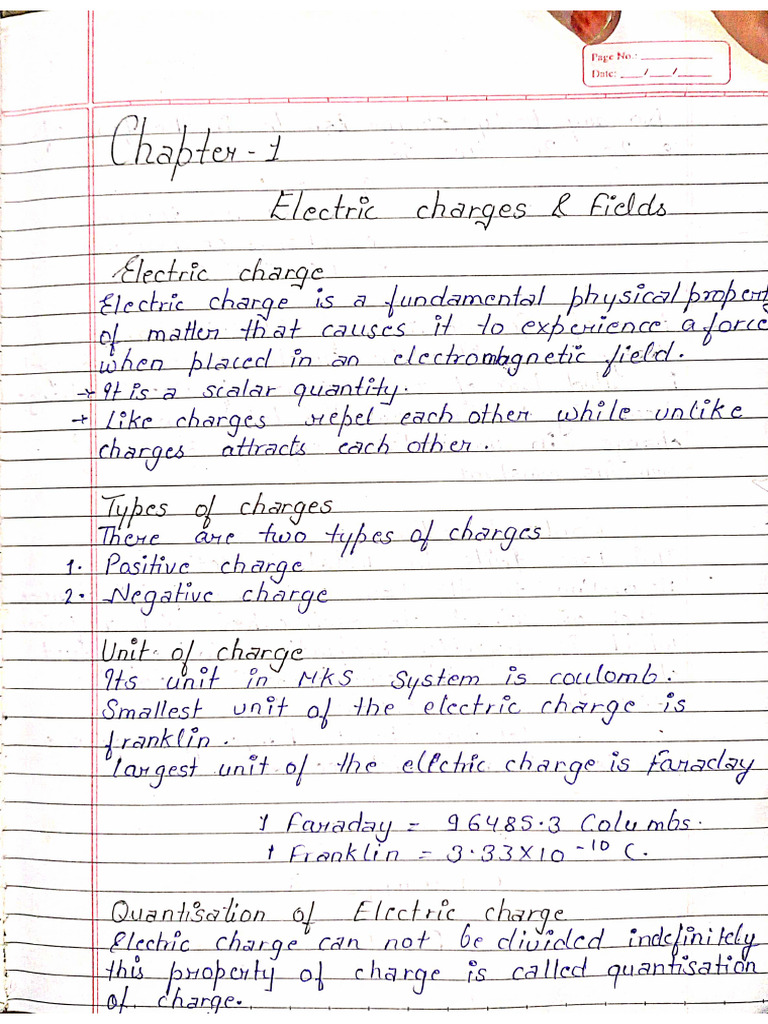 Page No.:
Date: / /
Chapter-1
Electric charges & Fields
Electric charge
Electric charge is a fundamental physical property
of matter that causes it to experience a force
when placed in an electromagnetic field.
→ It is a scalar quantity.
→ Like charges repel each other while unlike
charges attracts each other.
Types of charges
There are two types of charges
1. Positive charge
2. Negative charge
Unit of charge
Its unit in MKS System is coulomb.
Smallest unit of the electric charge is
franklin.
largest unit of the electric charge is Faraday
1 Faraday = 96485.3 Columbs.
1 Franklin = 3.33X10⁻¹⁰ C.
Quantisation of Electric charge
Electric charge can not be divided indefinitely
this property of charge is called quantisation
of charge.